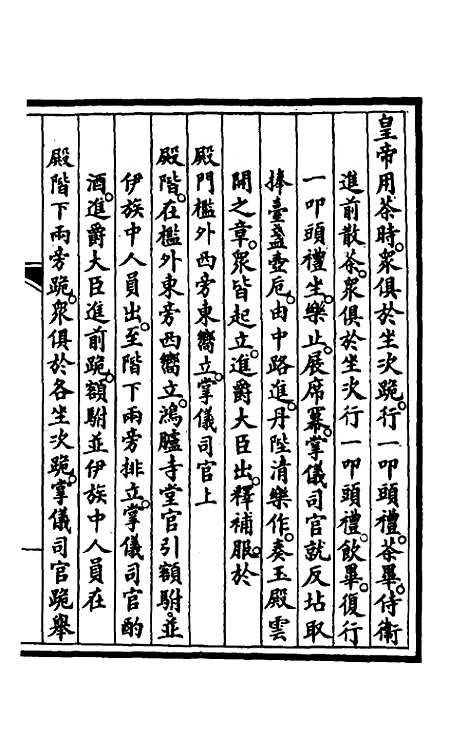 皇帝用茶時。衆俱於坐次跪。行一叩頭禮。茶畢。侍衛
進前散茶。衆俱於坐次行一叩頭禮。飲畢。復行
一叩頭禮坐。樂止。展席冪。掌儀司官就反坫取
捧臺盞壺卮。由中路進。丹陛清樂作。奏玉殿雲
開之章。衆皆起立。進爵大臣出。釋補服。於
殿門檻外西旁東嚮立。掌儀司官上
殿階。在檻外東旁西嚮立。鴻臚寺堂官引額駙。並
伊族中人員出。至階下兩旁排立。掌儀司官酌
酒。進爵大臣進前跪。額駙並伊族中人員在
殿階下兩旁跪。衆俱於各坐次跪。掌儀司官跪舉